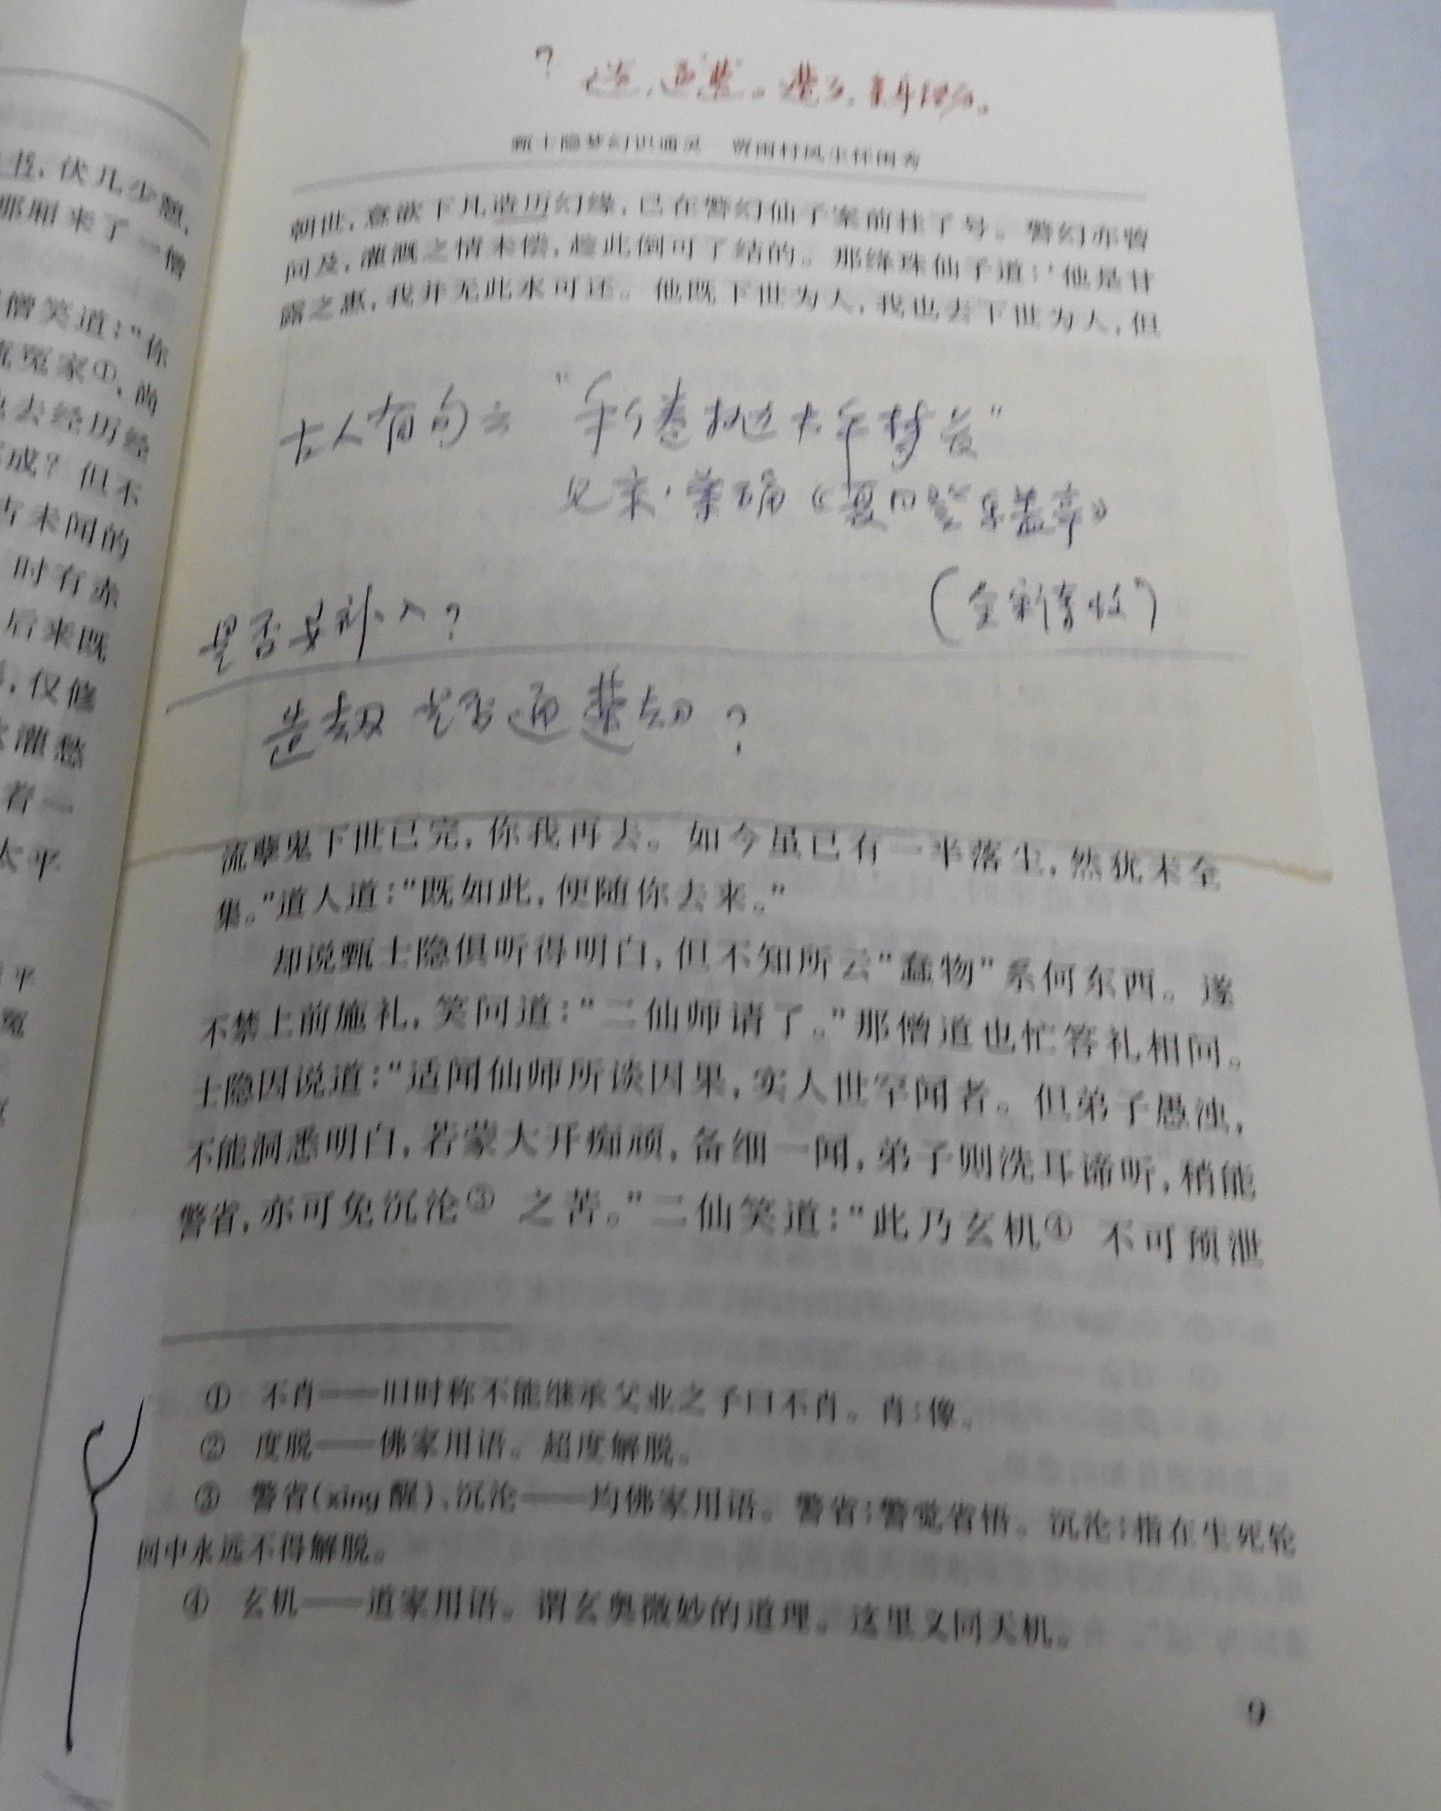 书，伏几少憩，
那厢来了一僧
僧笑道：“你
冤家①，尚
去经历经
成？但不
古未闻的
时有赤
后来既
，仅修
灌愁
着一
太平
?
甄士隐梦幻识通灵 贾雨村风尘怀闺秀
朝世，意欲下凡造历幻缘，已在警幻仙子案前挂了号。警幻亦曾
问及，灌溉之情未偿，趁此倒可了结的。那绛珠仙子道：‘他是甘
露之惠，我并无此水可还。他既下世为人，我也去下世为人，但
古人有句云“手倦抛书午梦长”
见宋·蔡确《夏日登车盖亭》
是否要补入？
造劫 是否通 遭劫？
流孽鬼下世已完，你我再去。如今虽已有一半落尘，然犹未全
集。”道人道：“既如此，便随你去来。”
却说甄士隐俱听得明白，但不知所云“蠢物”系何东西。遂
不禁上前施礼，笑问道：“二仙师请了。”那僧道也忙答礼相问。
士隐因说道：“适闻仙师所谈因果，实人世罕闻者。但弟子愚浊，
不能洞悉明白，若蒙大开痴顽，备细一闻，弟子则洗耳谛听，稍能
警省，亦可免沉沦③ 之苦。”二仙笑道：“此乃玄机④ 不可预泄
① 不肖——旧时称不能继承父业之子曰不肖。肖：像。
② 度脱——佛家用语。超度解脱。
③ 警省(xǐng 醒)、沉沦——均佛家用语。警省：警觉省悟。沉沦：指在生死轮
回中永远不得解脱。
④ 玄机——道家用语。谓玄奥微妙的道理。这里义同天机。
9